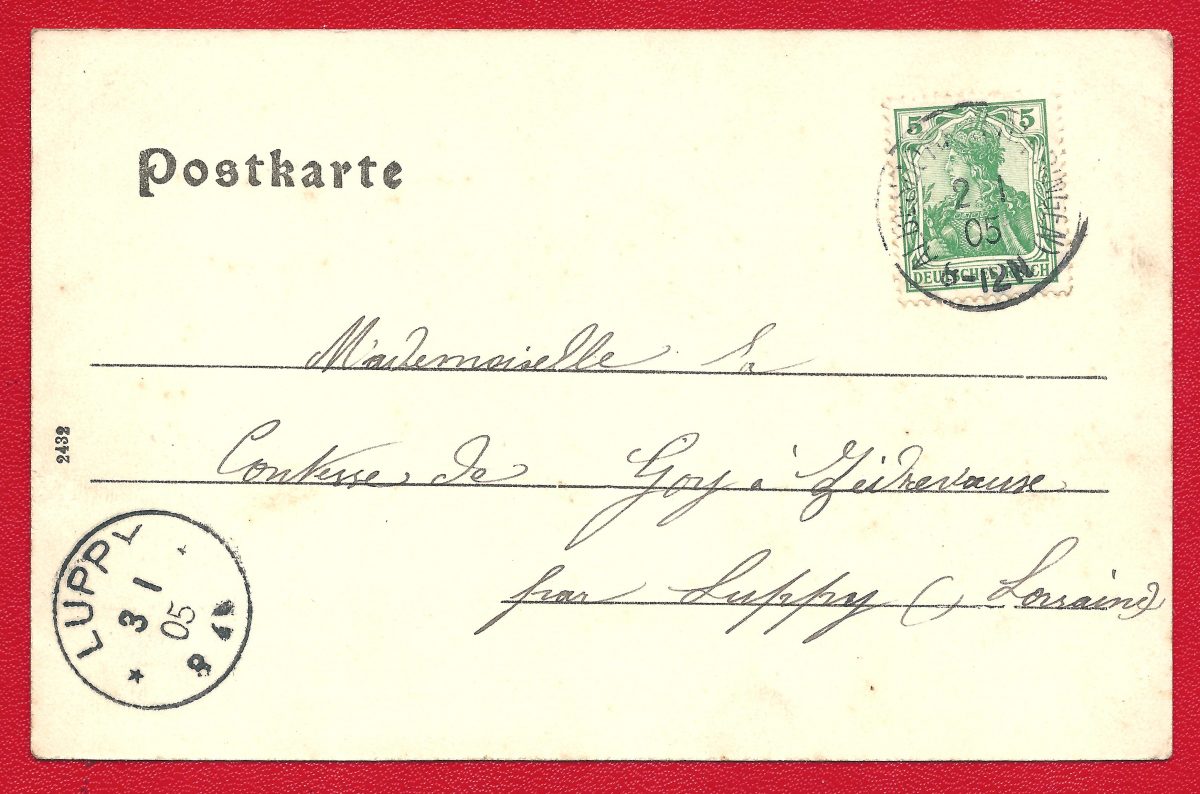 Postkarte
5 5
2 1
05
6-12N
DEUTSCHES REICH
Mademoiselle la
Comtesse de Goy à
par Luppy (Lorraine)
2432
LUPPY
3 1
05
8